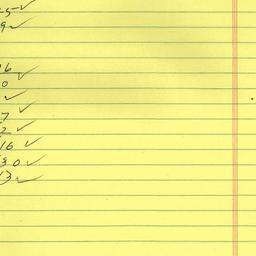 5 ✓
9 ✓
6 ✓
0
✓
7 ✓
2 ✓
16 ✓
30 ✓
13 ✓